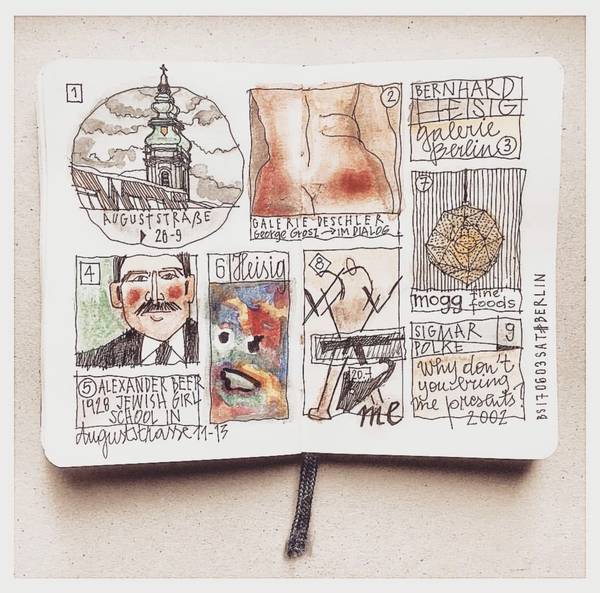 1
AUGUSTSTRAßE
20-9
2
GALERIE DESCHLER
George Grosz → IM DIALOG
BERNHARD
HEISIG
galerie
Berlin 3
4
5 ALEXANDER BEER
1928 JEWISH GIRL
SCHOOL IN
Auguststrasse 11-13
6 Heisig
8
20-
me
7
mogg fine
foods
SIGMAR 9
POLKE
Why don't
you bring
me presents?
2002
BS170603SAT#BERLIN